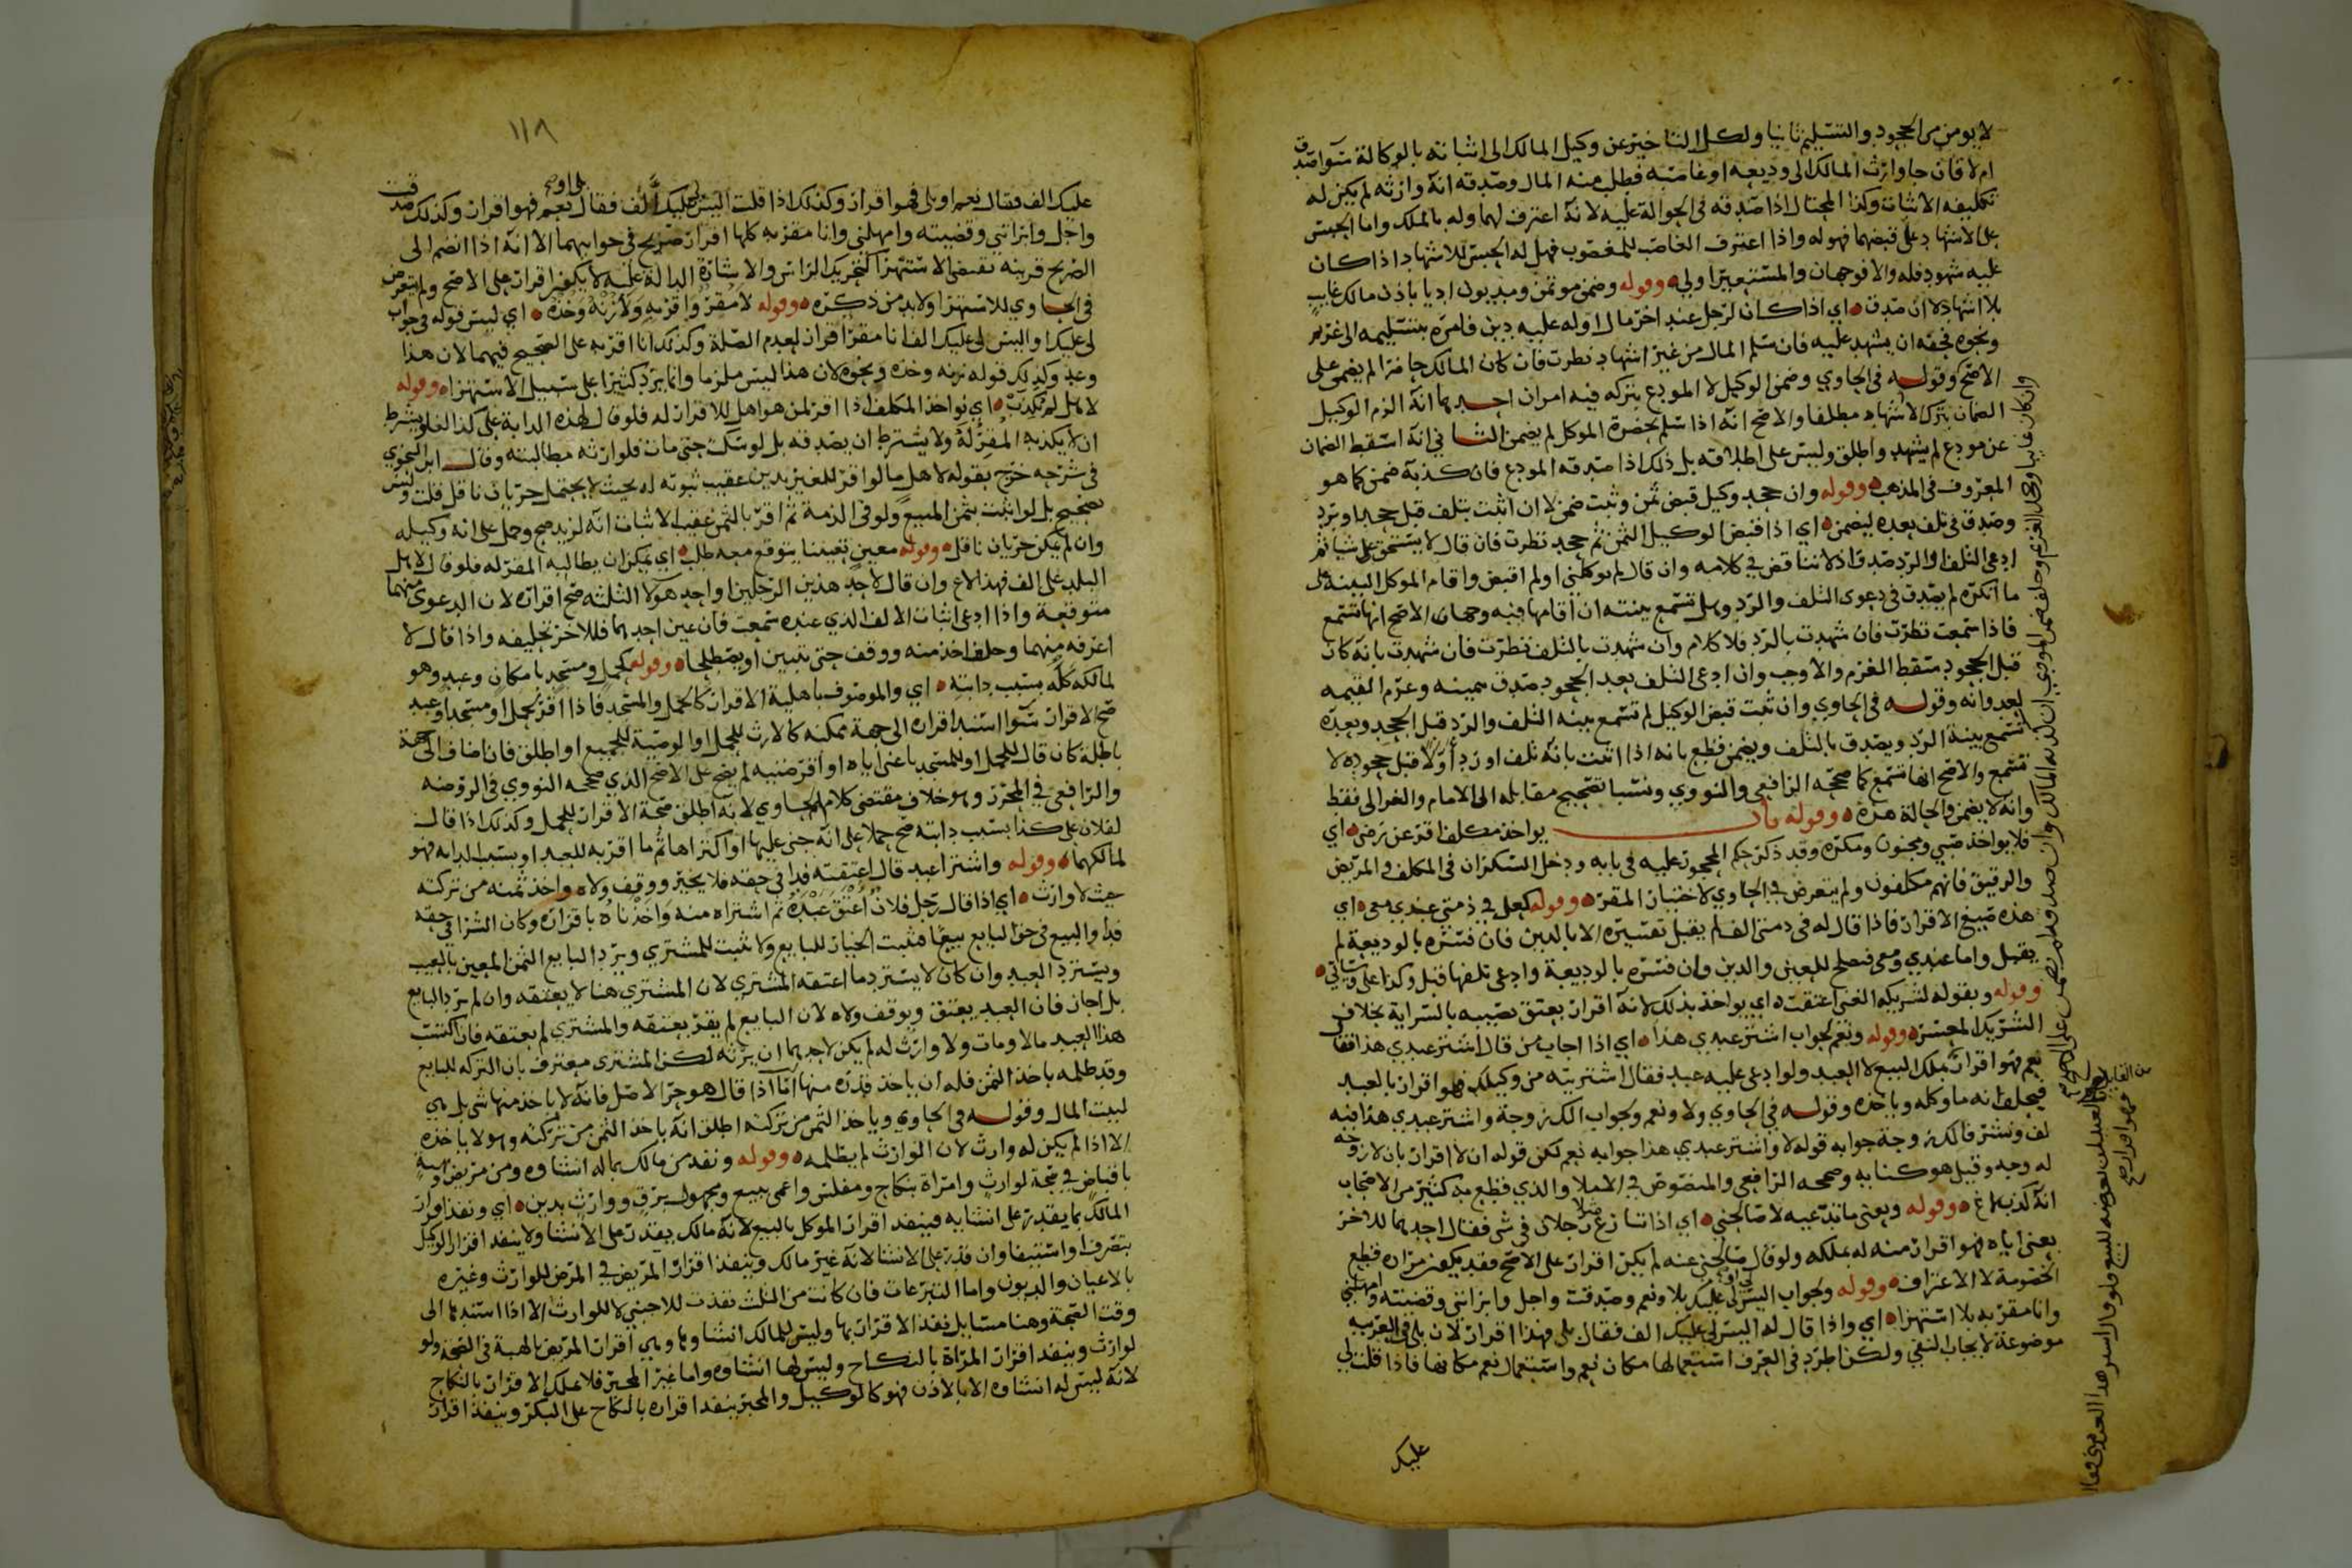 لا يومن من الجحود والتسليم ثانيا ولكل التاخير عن وكيل المالك الى اثباته بالوكالة سوا صدق
ام لا فان جا وارث المالك الى وديعه او غاصبه فطلب منه المال وصدقه انه وارثه لم يكن له
تكليفه الاثبات وكذا المحتال اذا صدقه في الحوالة عليه لانه اعترف لهما وله بالملك واما الحبس
على الاشهاد على قبضهما فهو له واذا اعترف الغاصب للمغصوب فهل له الحبس للاشهاد اذا كان
عليه شهود فله والا فوجهان والمستعير اولى وقوله وضمن موتمن ومديون اديا باذن مالك غايب
بلا اشهاد لا ان صدق اي اذا كان لرجل عند اخر مال او له عليه دين فامره بتسليمه الى غريم
ونحوه فحقه ان يشهد عليه فان سلم المال من غير اشهاد نظرت فان كان المالك حاضرا لم يضمن على
الاصح وقوله في الحاوي وضمن الوكيل لا المودع بتركه فيه امران احدهما انه الزم الوكيل
الضمان بترك الاشهاد مطلقا والاصح انه اذا سلم بحضرة الموكل لم يضمن الثاني انه اسقط الضمان
عن مودع لم يشهد واطلق وليس على اطلاقه بل ذلك اذا صدقه المودع فان كذبه ضمن كما هو
المعروف في المذهب وقوله وان جحد وكيل قبض ثمن وثبت ضمن لا ان اثبت بتلف قبل جحد او برد
وصدق في تلف بعده ليضمن اي اذا قبض الوكيل الثمن ثم جحد نظرت فان قال لا يستحق على شيا ثم
ادعى التلف او الرد صدق اذ لا تناقض في كلامه وان قال لم توكلني او لم اقبض واقام الموكل البينة على
ما انكره لم يصدق في دعوى التلف والرد وهل تسمع بينته ان اقامها فيه وجهان الاصح انها تسمع
فاذا سمعت نظرت فان شهدت بالرد فلا كلام وان شهدت بالتلف نظرت فان شهدت بانه كان
قبل الجحود سقط الغرم والا وجب وان ادعى التلف بعد الجحود صدق بيمينه وغرم القيمه
لعدوانه وقوله في الحاوي وان ثبت قبض الوكيل لم تسمع بينه التلف والرد قبل الجحد وبعده
تسمع بينة الرد ويصدق بالتلف ويضمن قطع بانه اذا اثبت بانه تلف او رد اولا قبل جحوده لا
تسمع والاصح انها تسمع كما صححه الرافعي والنووي ونسبا تصحيح مقابله الى الامام والغزالي فقط
وانه لا يضمن والحالة هذه وقوله باب يواخذ مكلف اقر عن رضى اي
فلا يواخذ صبي ومجنون ومكره وقد ذكر حكم المحجور عليه في بابه ودخل السكران في المكلف والمريض
والرقيق فانهم مكلفون ولم يتعرض في الحاوي لاختيار المقر وقوله كعلى في ذمتي عندي معى اي
هذه صيغ الاقرار فاذا قال له في ذمتي الف لم يقبل تفسيره الا بالدين فان فسره بالوديعة لم
يقبل واما عندي ومعى فتصلح للعين والدين وان فسره بالوديعة وادعى تلفها قبل وكذا على
وقوله وبقوله لشريكه الغني اعتقت اي يواخذ بذلك لانه اقرار بعتق نصيبه بالسراية بخلاف
الشريك المعسر وقوله ونعم لجواب اشتر عبدي هذا اي اذا اجاب من قال اشتر عبدي هذا فقال
نعم فهو اقرار بملك البيع لا العبد ولو ادعى عليه عبد فقال اشتريته من وكيلك فهو اقرار بالعبد
فيحلف انه ما وكله وياخذه وقوله في الحاوي ولا ونعم لجواب الك زوجة واشتر عبدي هذا فيه
لف ونشر فالك زوجة جوابه قوله لا واشتر عبدي هذا جوابه نعم لكن قوله ان لا اقرار بان لا زوجه
له وجه وقيل هو كنايه وصححه الرافعي والمنصوص في الاملا والذي قطع به كثير من الاصحاب
انه كذب لاغ وقوله وبعنى ما تدعيه لا صالحني اي اذا تنازع رجلان في شى فقال احدهما للاخر
بعنى اياه فهو اقرار منه له بملكه ولو قال صالحني عنه لم يكن اقرار على الاصح فقد يكون مراده قطع
الخصومة لا الاعتراف وقوله ولجواب اليس لي عليك بلا ونعم وصدقت واجل وابراتني وقضيته وامهلني
وانا مقر به بلا استهزا اي واذا قال له اليس لي عليك الف فقال بلى فهذا اقرار لان بلى في العربيه
موضوعة لايجاب النفي ولكن اطرد في العرف استعمالها مكان نعم واستعمال نعم مكانها فاذا قلت لي
عليك
١١٨
عليك الف فقال نعم او بلى فهو اقرار وكذلك اذا قلت اليس لي عليك الف فقال نعم فهو اقرار وكذلك صدقت
واجل وابراتني وقضيته وامهلني وانا مقر به كلها اقرار صريح في جوابهما الا انه اذا انضم الى
الصريح قرينه تقتضي الاستهزا كتحريك الراس والاشارة الدالة عليه لا يكون اقرار على الاصح ولم يتعرض
في الحاوي للاستهزا ولا بد من ذكره وقوله لا مقر واقر به ولا زنه وخذه اي ليس قوله في جواب
لى عليك او اليس لى عليك الف انا مقر اقرار لعدم الصلة وكذلك انا اقر به على الصحيح فيهما لان هذا
وعد وكذلك قوله زنه وخذه ونحوه لان هذا ليس ملزما وانما يرد كثيرا على سبيل الاستهزا وقوله
لاهل لم يكذب اي يواخذ المكلف اذا اقر لمن هو اهل للاقرار له فلو قال لهذه الدابة على كذا لغا ويشترط
ان لا يكذبه المقر له ولا يشترط ان يصدقه بل لو سكت حتى مات فلوارثه مطالبته وقال ابن النحوي
في شرحه خرج بقوله لاهل ما لو اقر للغير بدين عقيب ثبوته له بحيث لا يحتمل جريان ناقل قلت وليس
بصحيح بل لو اثبت بثمن المبيع ولو في الذمة ثم اقر بالثمن عقب الاثبات انه لزيد صح وحمل على انه وكيله
وان لم يمكن جريان ناقل وقوله معين تعيينا يتوقع معه طلب اي يمكن ان يطالبه المقر له فلو قال لاهل
البلد على الف فهذا لاغ وان قال لاحد هذين الرجلين او احد هولا الثلثه صح اقراره لان الدعوى منهما
متوقعة واذا ادعى اثبات الالف الذي عنده سمعت فان عين احدهما فللاخر تحليفه واذا قال لا
اعرفه منهما وحلف اخذ منه ووقف حتى تتبين او يصطلحا وقوله كحمل ومسجد بامكان وعبد وهو
لمالكه كله بسبب دابته اي والموصوف باهلية الاقرار كالحمل والمسجد فاذا اقر لحمل او مسجد او عبد
صح الاقرار سوا اسند اقراره الى جهة ممكنه كالارث للحمل او الوصية للجميع او اطلق فان اضاف الى جهة
باطلة كان قال للحمل او للمسجد باعني اياه او اقرضنيه لم يصح على الاصح الذي صححه النووي في الروضه
والرافعي في المحرر وهو خلاف مقتضى كلام الحاوي لانه اطلق صحة الاقرار للحمل وكذلك اذا قال
لفلان على كذا بسبب دابته صح حملا على انه جنى عليها او اكتراها ثم ما اقر به للعبد او بسبب الدابه فهو
لمالكهما وقوله واشترا عبد قال اعتقته فدا في حقه فلا يخير ووقف ولاه واخذ ثمنه من تركته
حيث لا وارث اي اذا قال رجل فلان اعتق عبده ثم اشتراه منه واخذناه باقراره وكان الشرا في حقه
فدا والبيع في حق البايع بيعا فثبت الخيار للبايع ولا ثبت للمشتري ويرد البايع الثمن المعين بالعيب
ويسترد العبد وان كان لا يسترد ما اعتقه المشتري لان المشتري هنا لا يعتقه وان لم يرد البايع
بل اجاز فان العبد يعتق ويوقف ولاه لان البايع لم يقر بعتقه والمشتري لم يعتقه فان اكتسب
هذا العبد مالا ومات ولا وارث له لم يكن لاحدهما ان يرثه لكن المشتري معترف بان التركه للبايع
وقد ظلمه باخذ الثمن فله ان ياخذ قدره منها اما اذا قال هو حر الاصل فانه لا ياخذ منها شى بل هي
لبيت المال وقوله في الحاوي وياخذ الثمن من تركته اطلق انه ياخذ الثمن من تركته وهو لا ياخذه
الا اذا لم يكن له وارث لان الوارث لم يظلمه وقوله ونفذ من مالك بما له انشاوه ومن مريض وهبة
باقباض في صحة لوارث وامراة بنكاح ومفلس واعمى ببيع ومجهول برق ووارث بدين اي ونفذ اقرار
المالك بما يقدر على انشايه فينفد اقرار الموكل بالبيع لانه مالك يقدر على الانشا ولا ينفد اقرار الوكيل
بتصرف او استيفا وان قدر على الانشا لانه غير مالك وينفذ اقرار المريض في المرض للوارث وغيره
بالاعيان والديون واما التبرعات فان كانت من الثلث نفذت للاجنبي لا للوارث الا اذا اسندها الى
وقت الصحة وهنا مسايل نفذ الاقرار بها وليس للمالك انشاوها وهي اقرار المريض بالهبة في الصحة ولو
لوارث وينفد اقرار المراة بالنكاح وليس لها انشاوه واما غير المجبر فلا يملك الاقرار بالنكاح
لانه ليس له انشاوه الا بالاذن فهو كالوكيل والمجبر ينفد اقراره بالنكاح على البكر وينفذ اقرار